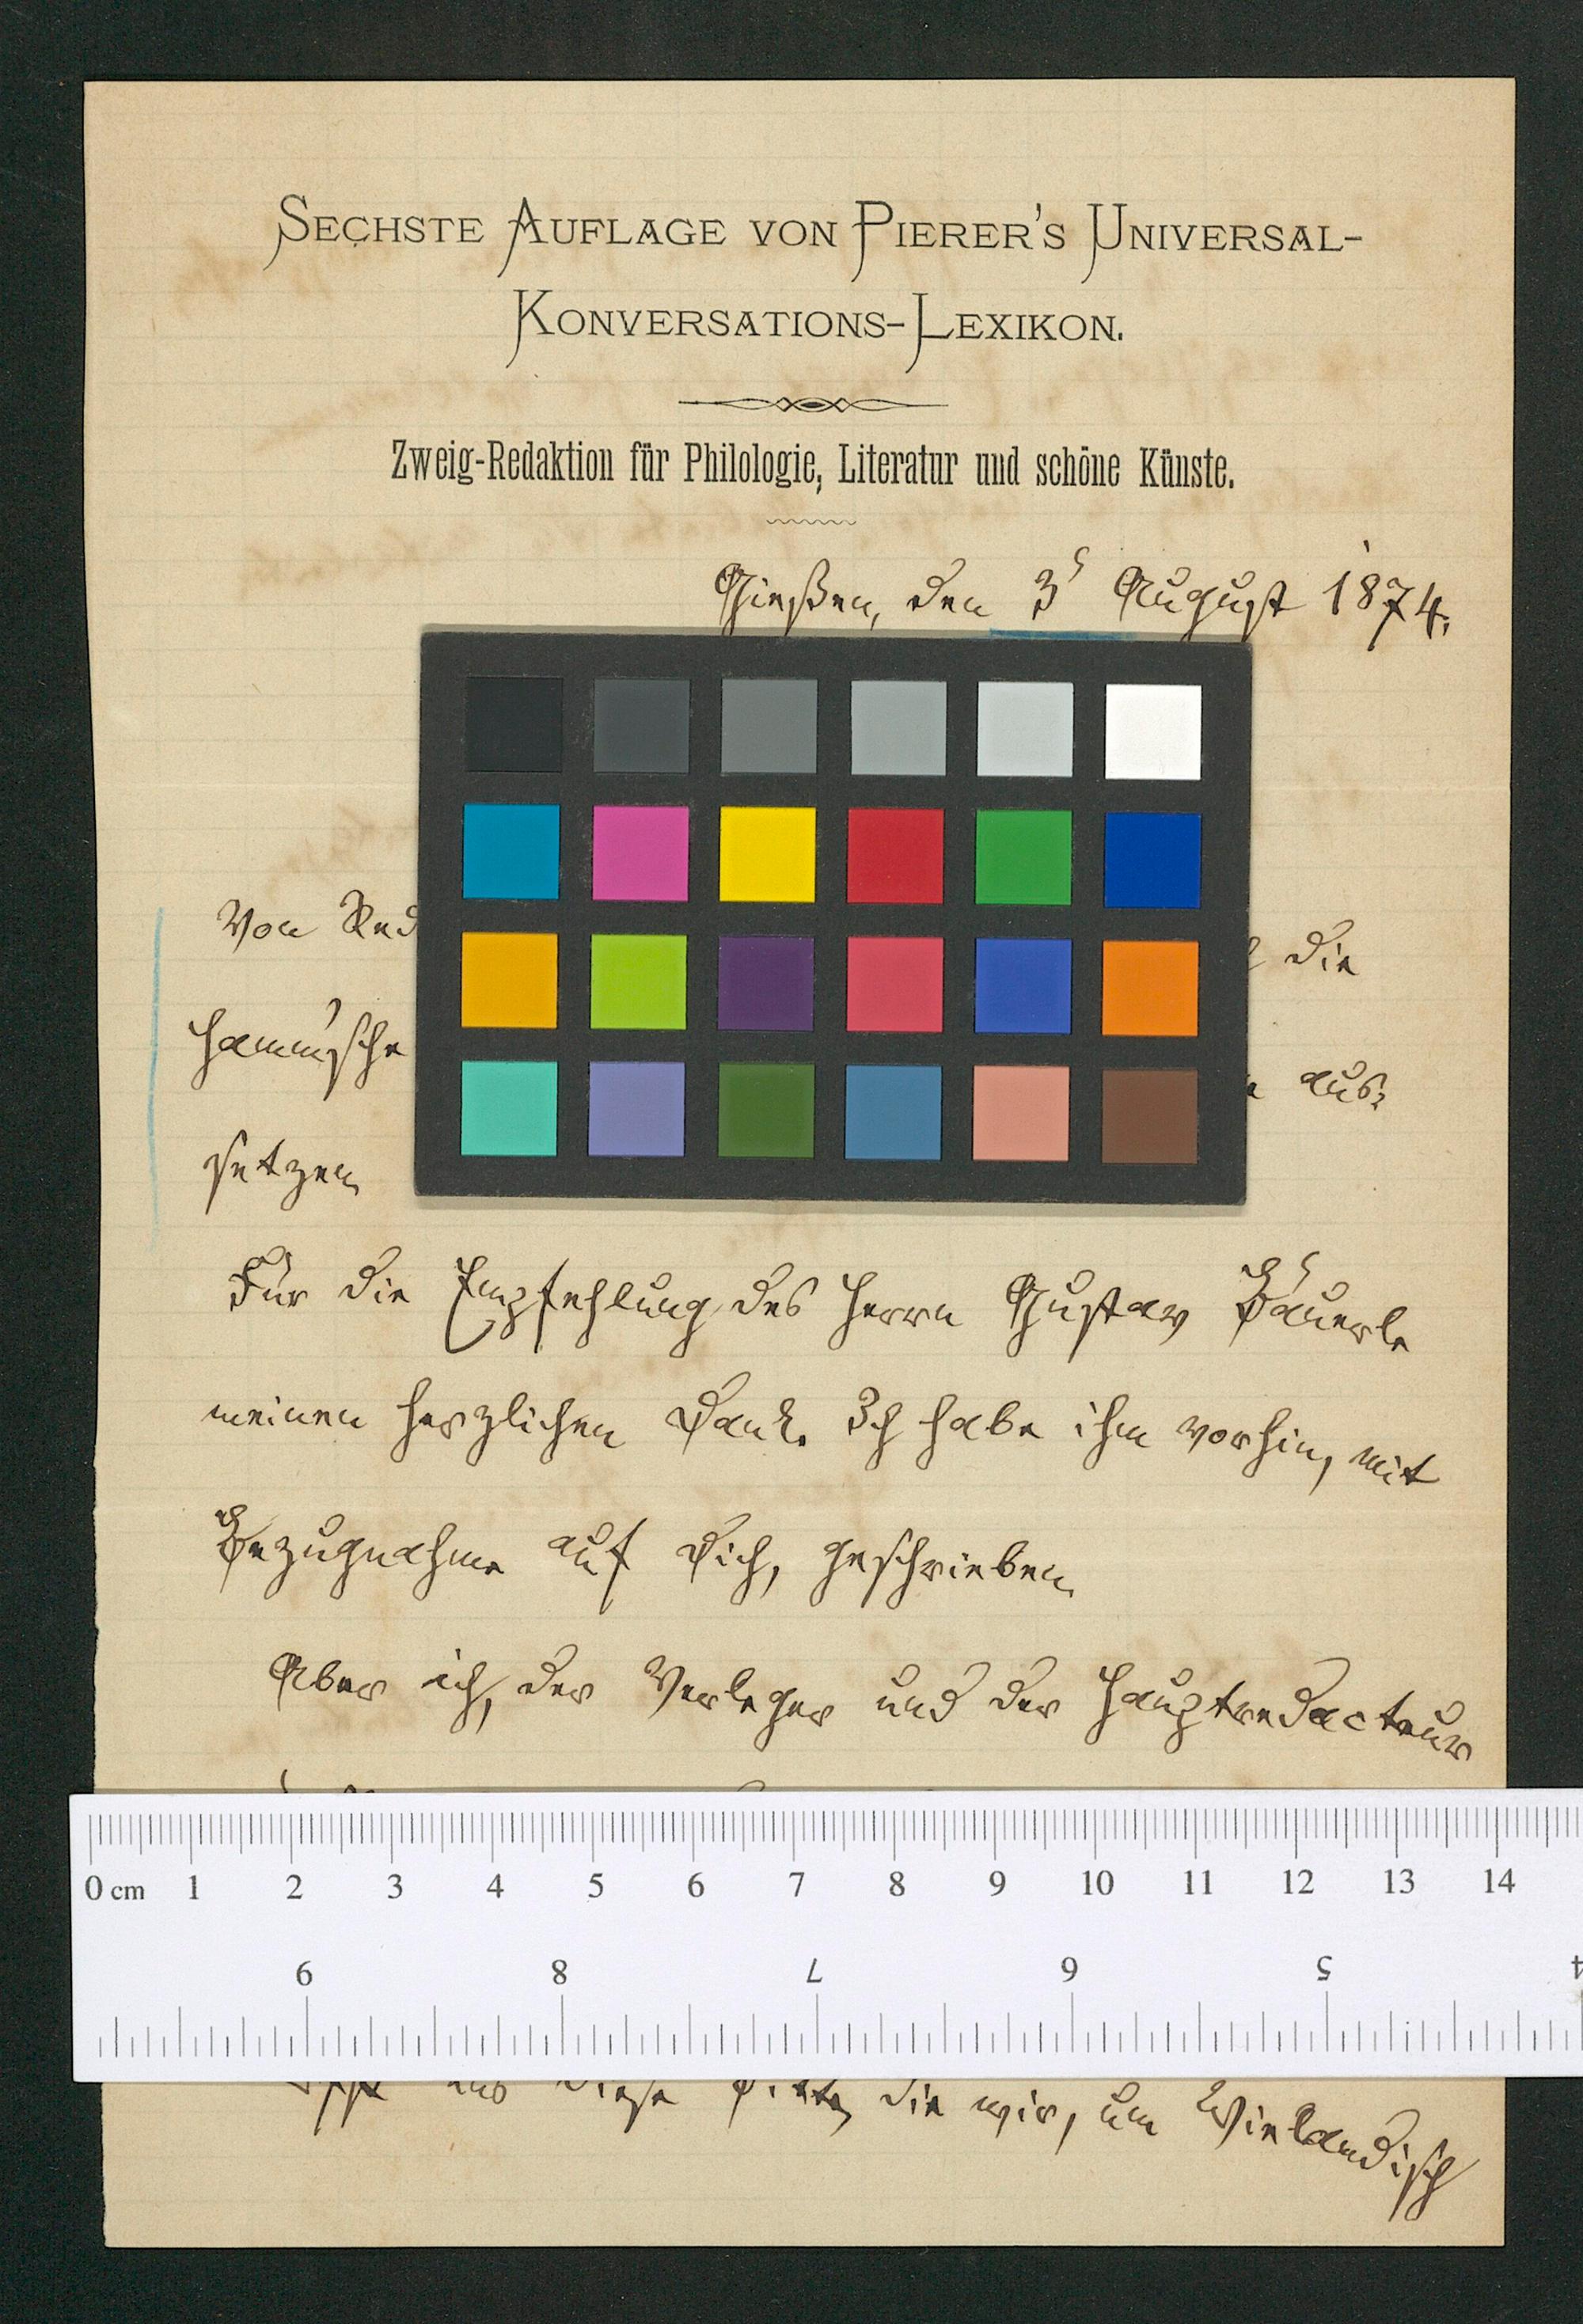 SECHSTE AUFLAGE VON PIERER'S UNIVERSAL-
KONVERSATIONS-LEXIKON.
Zweig-Redaktion für Philologie, Literatur und schöne Künste.
Gießen, den 3ᵗ August 1874.
Von Red
die
Hamm'sche
aus-
setzen
Für die Empfehlung des Herrn Gustav Bäuerle
meinen herzlichen Dank. Ich habe ihm vorhin, mit
Bezugnahme auf Dich, geschrieben.
Aber ich, der Verleger und der Hauptredacteur
0 cm 1 2 3 4 5 6 7 8 9 10 11 12 13 14
9 8 7 6 5 4
uns diese Bitte, die wir, um Wielandisch